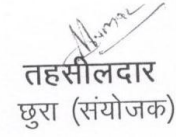 तहसीलदार
छुरा (संयोजक)